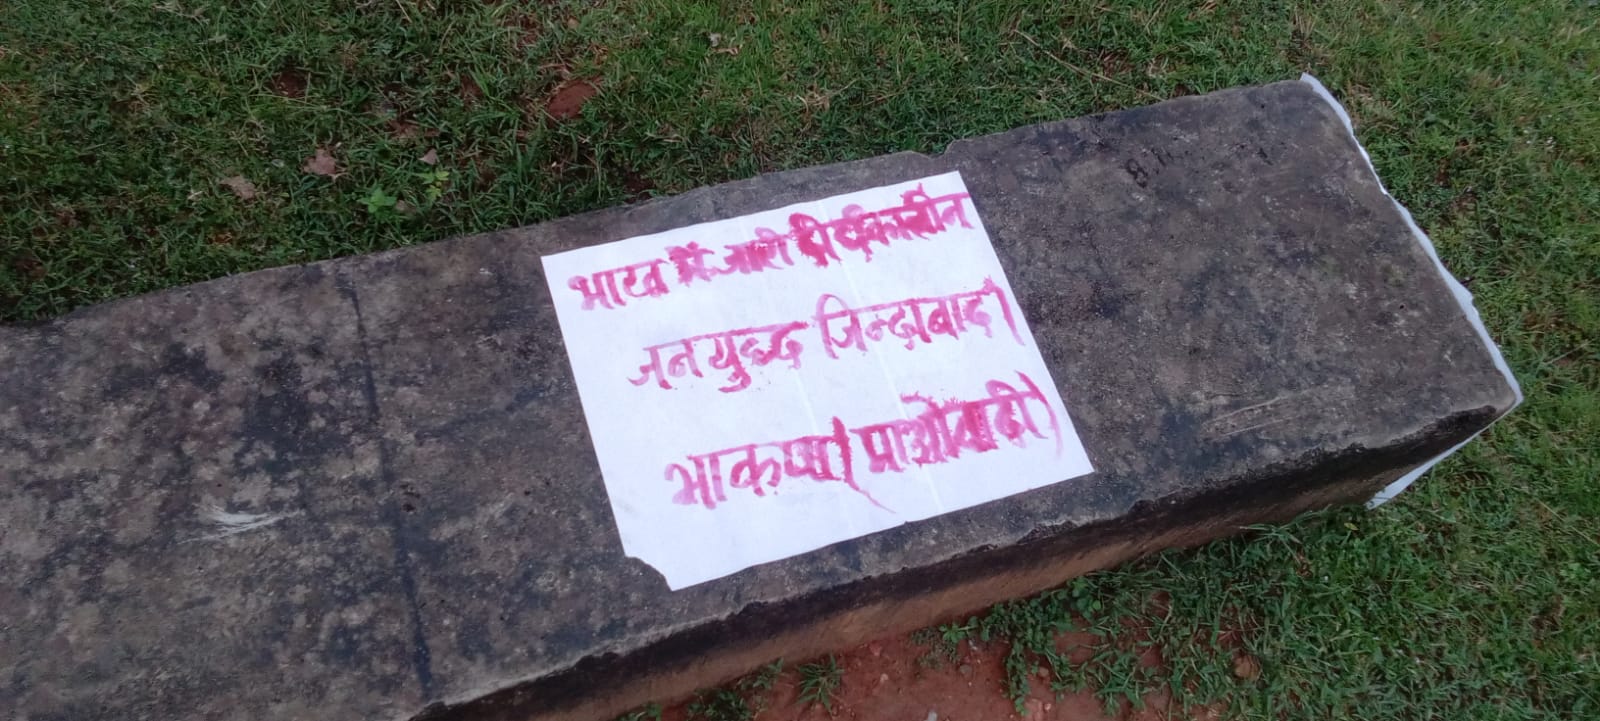 भारत में जारी दीर्घकालीन
जनयुद्ध जिन्दाबाद।
भाकपा (माओवादी)